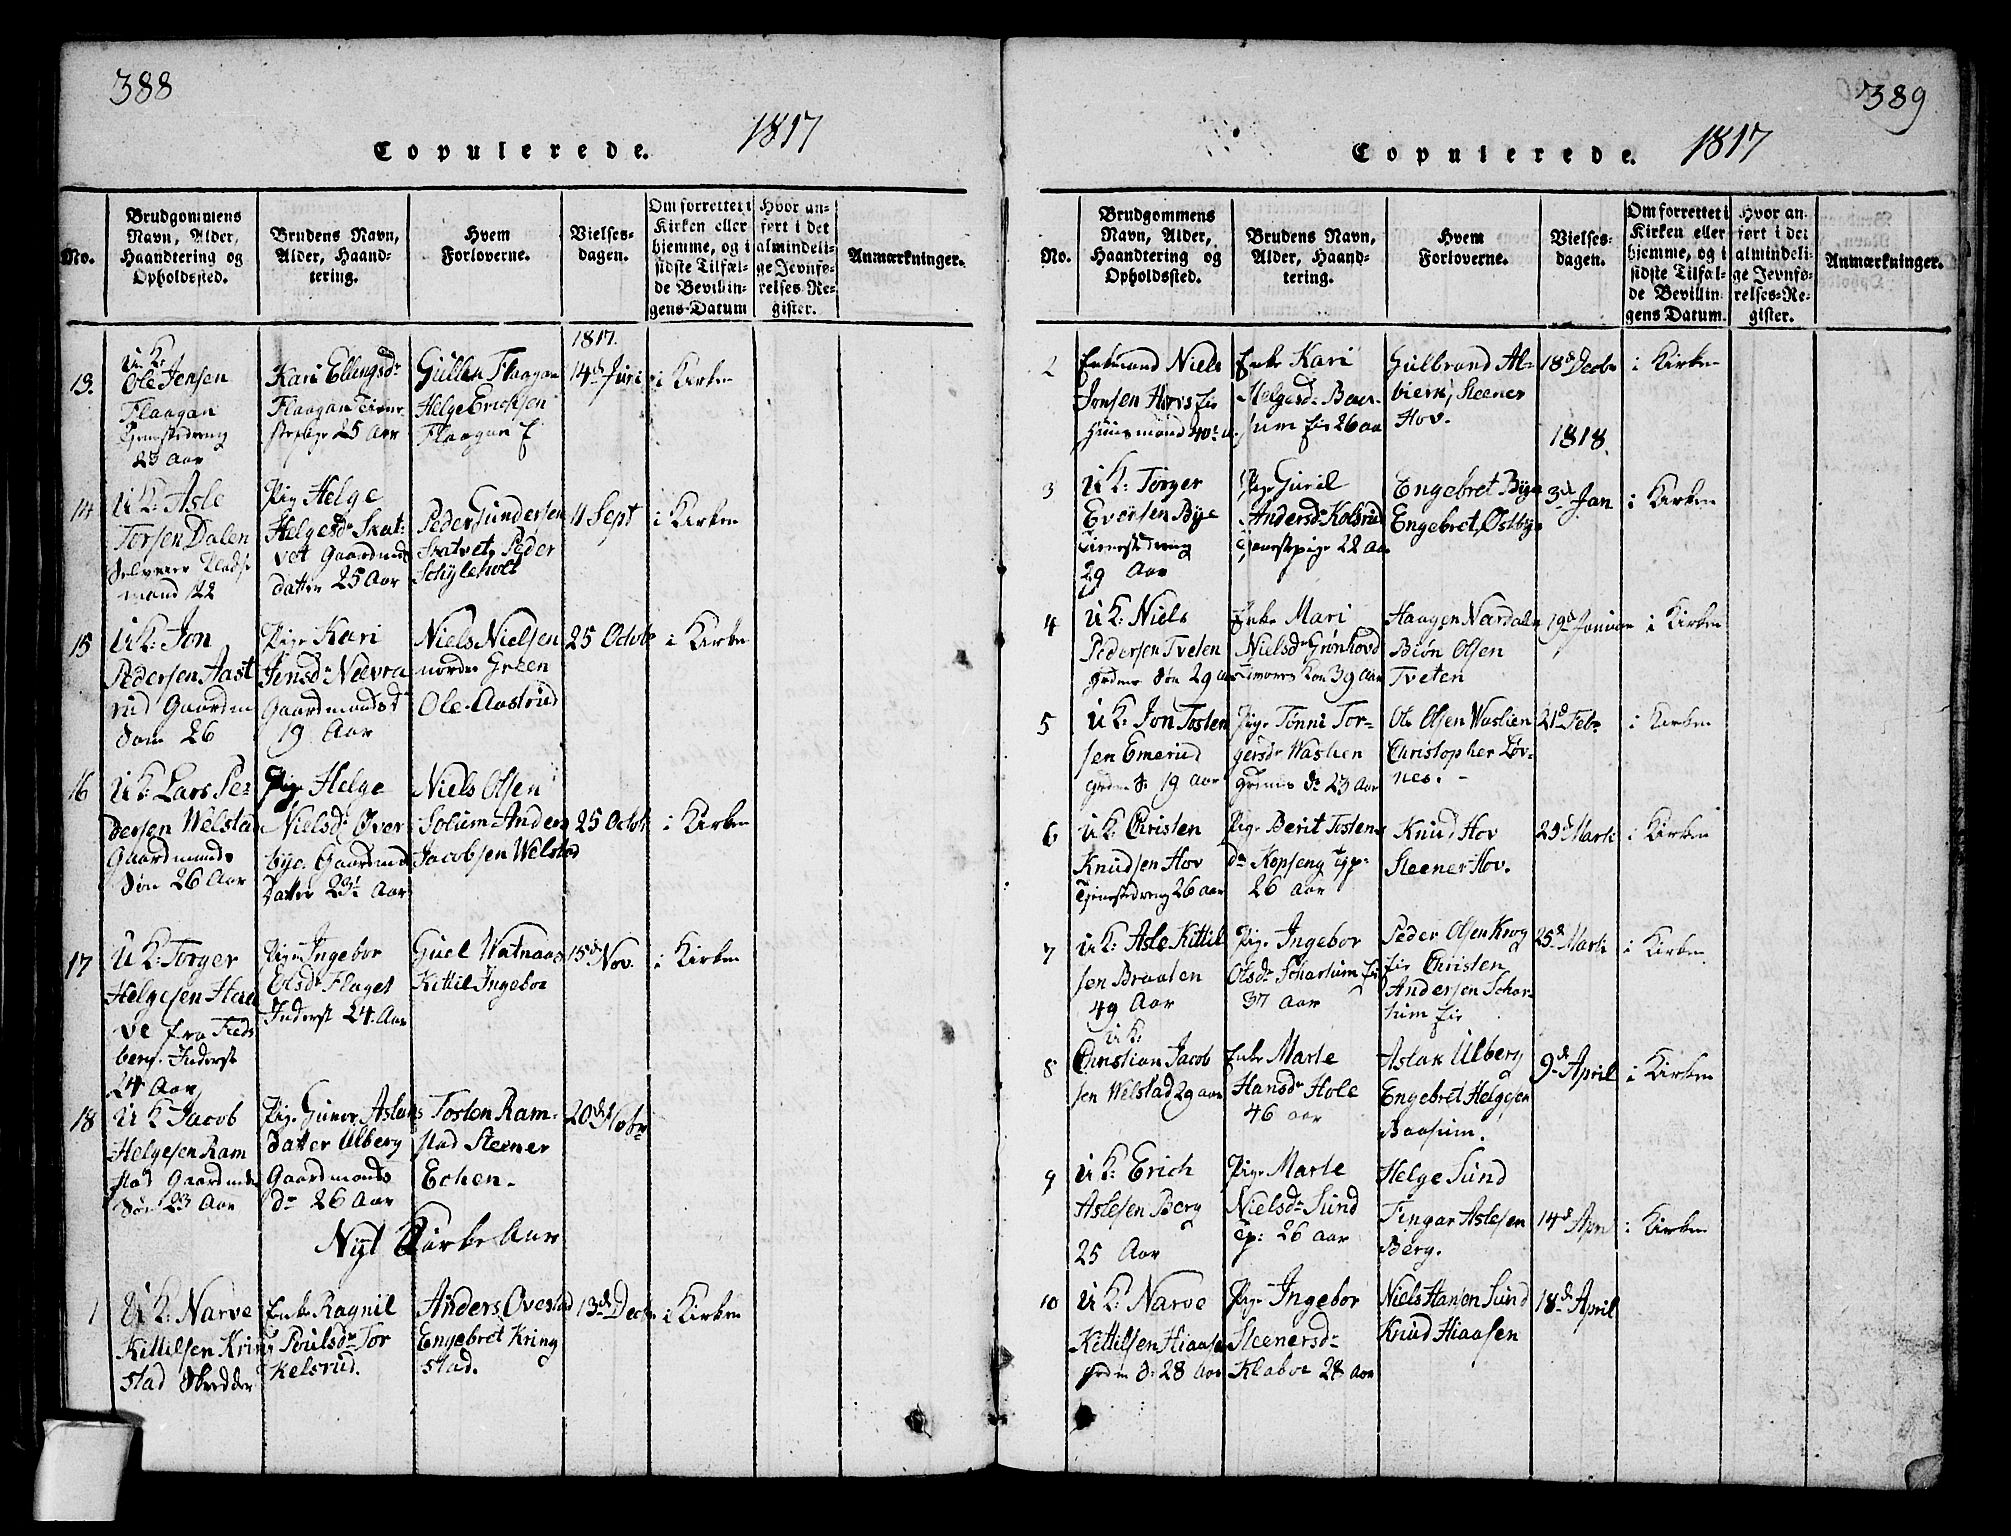 388
Copulerede. 1817
No.
Brudgommens
Navn, Alder,
Haandtering og
Opholdssted.
Brudens Navn,
Alder, Haand-
tering.
Hvem
Forloverne.
Vielses-
dagen.
Om forrettet i
Kirken eller
hjemme, og i
sidste Tilfæl-
de Bevillin-
gens-Datum
Hvor an-
ført i det
almindeli-
ge Jevnfø-
relses-Re-
gister.
Anmærkninger.
1817.
13.
U K:
Ole Jensen
Flaagan
Tjenestedreng
23 Aar
Kari Ellingsdr
Flaagan Tiene-
stepige 25 Aar
Gullen Flaagan
Helge Ericksen
Flaagan
14de Juni
i Kirken
14
U K: Asle
Torsen Dalen
mand 22
Pige Helge
Helgesdr Skat-
vet Gaardmds
datter 25 Aar
Peder Gundersen
Skatvet, Peder
4 Sept
i Kirken
15
U K: Jon
Pedersen Aast
rud Gaardm
Søn 26
Pige Kari
Jensdr Neevra
Gaardmandsd
19 Aar
Niels Nielsen
nordre
Ole Aastrud
25 Octob
i Kirken
16
U K: Lars Pe-
dersen Welstad
Gaardmands
Søn 26 Aar
Pige Helge
Nielsdr Over
bye. Gaardmd
Datter 23½ Aar
Niels Olsen
Solum Anders
Jacobsen Welstad
25 Octob
i Kirken
17
U K: Torger
Helgesen
ve fra Fleds
berg. Inderst
24 Aar
Pige Ingebor
Olsdr Flaget
Inderst 24 Aar
Guel Watnaas
Kittil Ingebor
15de Nov.
i Kirken
18
U K: Jacob
Helgesen Ram
stad Gaardmds
Søn 23 Aar
Pige Gunor Aslaks
datter Ulberg
Gaardmands
dr 26 Aar
Tosten Ram-
stad Steener
Echen.
20de
Nyt Kirke Aar
1
U K: Narve
Kittilsen Kring
stad Skredder
Enke Ragnil
Poulsdr Tor
kelsrud.
Anders Overstad
Engebret Kring
stad.
13de Decb
i Kirken
389
Copulerede. 1817
No.
Brudgommens
Navn, Alder,
Haandtering og
Opholdssted.
Brudens Navn,
Alder, Haand-
tering.
Hvem
Forloverne.
Vielses-
dagen.
Om forrettet i
Kirken eller
hjemme, og i
sidste Tilfæl-
de Bevillin-
gens Datum.
Hvor an-
ført i det
almindeli-
ge Jevnfø-
relses-Re-
gister.
Anmærkninger.
2
Enkmand Niels
Jonsen
Huusmand 40
Enke Kari
Helgesd
26 aar
Gulbrand Al-
Steener
Hov.
18de Decbr
i Kirken
1818.
3
U K: Torger
Eversen Bye
Tienestedreng
29 Aar
Pige Guril
Andersdr Kolsrud
Tjenestepige 22 Aar
Engebret Bye
Engebret Østbye
3de Jan
i Kirken
4
U K: Niels
Pedersen Tveten
Søn 29 aar
Enke Mari
Nielsdr Grønhovd
Kon 39 aar
Haagen Nardalen
Biøn Olsen
Tveten
19de Januar
i Kirken
5
U K: Jon Tosten
sen Emerud
19 aar
Pige Tønni Tor-
gersdr Waslien
dr 23 aar
Ole Olsen Waslien
Christopher Løv-
nes.
21de Febr
i Kirken
6
U K: Christen
Knudsen Hov
Tjenestedreng 26 aar
Pige Berit Tostens
dr Kopseng Tjp:
26 aar
Knud Hov
Steener Hov.
23de Marti
i Kirken
7
U K: Asle Kittil
sen Braaten
49 Aar
Pige Ingebor
Olsdr Scharsum
37 aar
Peder Olsen Krog
Christen
Andersen Schar-
sum
25de Marti
i Kirken
8
U K:
Christian Jacob
sen Welstad 29 aar
Enke Marte
Hansdr Hole
46 aar
Aslak Ulberg
Engebret Helgesen
Baasum.
9de April
i Kirken
9
U K: Erich
Aslesen Berg
25 Aar
Pige Marte
Nielsdr Sund
Tp: 26 aar
Helge Sund
Fingar Aslesen
Berg.
14de Apri
i Kirken
10
U K: Narve
Kittilsen Hiaasen
28 Aar
Pige Ingebor
Steenersdr
Klaboe 28 Aar
Niels Hansen Sund
Knud Hiaasen
18de April